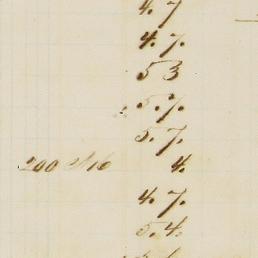 4. 7
4. 7.
5 3
5. 7.
5. 7.
200 4.
4. 7.
5. 4.